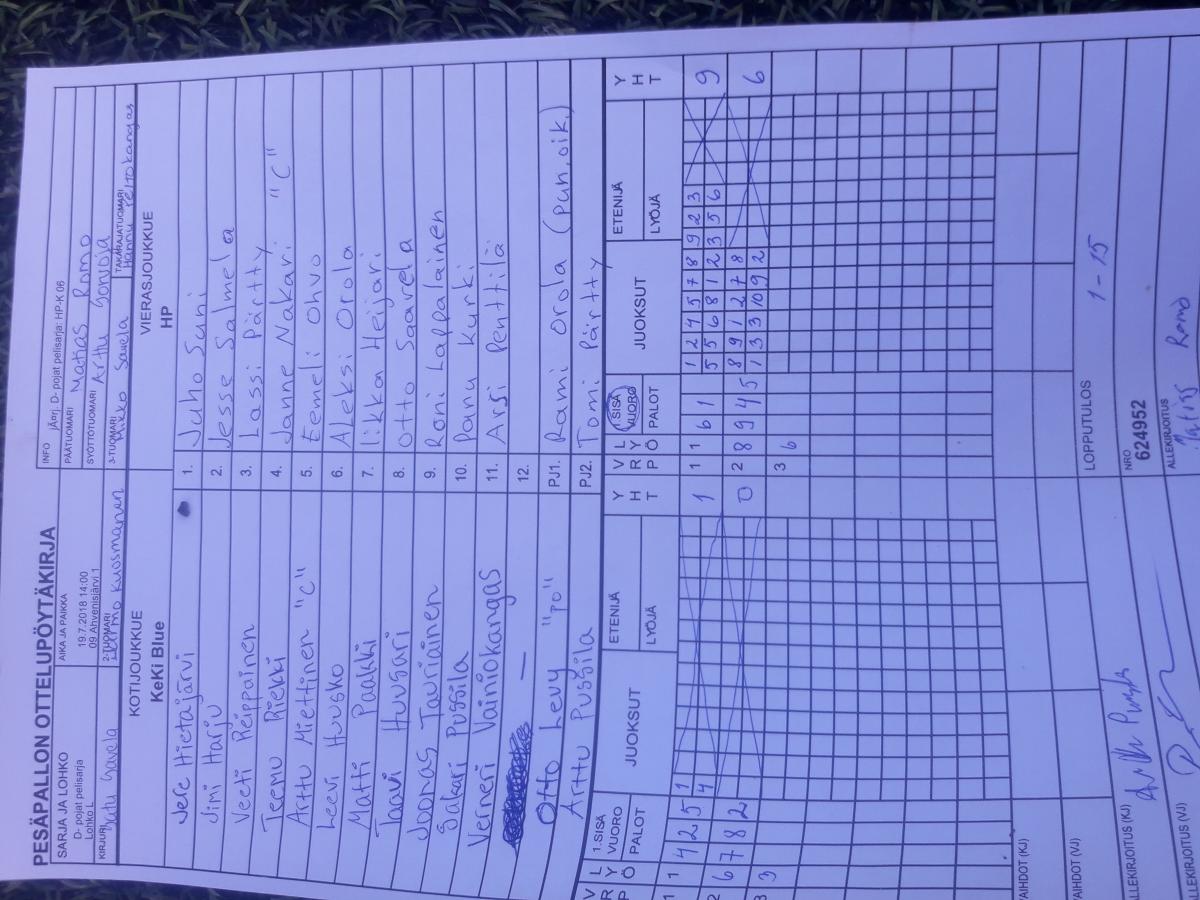 PESÄPALLON OTTELUPÖYTÄKIRJA
SARJA JA LOHKO
D- pojat pelisarja
Lohko L
AIKA JA PAIKKA
19.7.2018 14:00
09 Ahvenisjärvi 1
INFO jÄorj. D- pojat pelisarja: HP-K 06
PÄÄTUOMARI Matias Romo
SYÖTTÖTUOMARI Arttu Sorvoja
KIRJURI Satu Savela
2-TUOMARI Kuosmanen
3-TUOMARI Mikko Savela
TAKARAJATUOMARI Hannu
KOTIJOUKKUE
KeKi Blue
VIERASJOUKKUE
HP
Jere Hietajärvi 1. Juho Suni
Jimi Harju 2. Jesse Salmela
Veeti Reippainen 3. Lassi Pärtty
Teemu Riekki 4. Janne Nakari "C"
Arttu Miettinen "C" 5. Eemeli Ohvo
Leevi Huusko 6. Aleksi Orola
Matti Paakki 7. Iikka Heijari
Taavi Huusari 8. Otto Saarela
Joonas Tauriainen 9. Roni Lappalainen
Sakari Pussila 10. Panu Kurki
Verneri Vainiokangas 11. Arsi Penttilä
— 12.
Otto Levy "PO" PJ1. Rami Orola (pun.oik.)
Arttu Pussila PJ2. Tomi Pärtty
V R P L Y Ö 1.SISÄ VUORO PALOT JUOKSUT ETENIJÄ LYÖJÄ Y H T V R P L Y Ö 1.SISÄ VUORO PALOT JUOKSUT ETENIJÄ LYÖJÄ Y H T
1 1 4 2 5 1 1 1 1 6 1 1 2 4 5 7 8 9 2 3 9
4 5 5 6 8 1 2 3 5 6
2 6 7 8 2 0 2 8 9 4 5 8 9 1 2 7 8 6
1 3 3 10 9 2
3 9 3 6
VAIHDOT (KJ)
LOPPUTULOS 1-15
VAIHDOT (VJ)
ALLEKIRJOITUS (KJ)
NRO
624952
ALLEKIRJOITUS (VJ)
ALLEKIRJOITUS